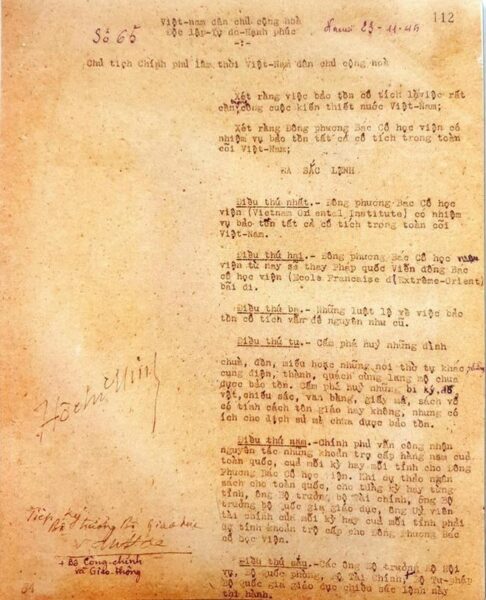 112
Việt-nam dân chủ cộng hoà
Số 65
Độc lập-Tự do-Hạnh phúc
Hanoi 23-11-45
-:-
Chủ tịch Chính phủ lâm thời Việt-Nam dân chủ cộng hoà
Xét rằng việc bảo tồn cổ tích là việc rất
cần trong công cuộc kiến thiết nước Việt-Nam;
Xét rằng Đông phương Bác Cổ học viện có
nhiệm vụ bảo tồn tất cả cổ tích trong toàn
cõi Việt-Nam;
RA SẮC LỆNH
Điều thứ nhất.- Đông phương Bác Cổ học
viện (Vietnam Oriental Institute) có nhiệm
vụ bảo tồn tất cả cổ tích trong toàn cõi
Việt-Nam.
Điều thứ hai.- Đông phương Bác Cổ học viện
viện từ nay sẽ thay Pháp quốc Viễn đông Bác
Cổ học viện (Ecole Francaise d'Extrême-Orient)
bãi đi.
Điều thứ ba.- Những luật lệ về việc bảo
tồn cổ tích vẫn để nguyên như cũ.
Điều thứ tư.- Cấm phá huỷ những đình
chùa, đền, miếu hoặc những nơi thờ tự khác, những
cung điện, thành, quách cùng lăng mộ chưa
được bảo tồn. Cấm phá huỷ những bi ký, đồ
vật, chiếu sắc, văn bằng, giấy má, sách vở
có tính cách tôn giáo hay không, nhưng có
ích cho lịch sử mà chưa được bảo tồn.
Điều thứ năm.-Chính phủ vẫn công nhận
nguyên tắc những khoản trợ cấp hàng năm của
toàn quốc, của mỗi kỳ hay mỗi tỉnh cho Đông
Phương Bác Cổ học viện. Khi sự thảo ngân
sách cho toàn quốc, cho từng kỳ hay từng
tỉnh, ông Bộ trưởng bộ Tài chính, ông Bộ
trưởng bộ quốc gia giáo dục, ông Uỷ viên
tài chính của mỗi kỳ hay của mỗi tỉnh phải
dự tính khoản trợ cấp cho Đông Phương Bác
Cổ học viện.
Điều thứ sáu.- Các ông Bộ trưởng Bộ Nội
vụ, Bộ quốc phòng, Bộ Tài Chính, Bộ Tư-pháp
Bộ quốc gia giáo dục chiểu sắc lệnh này
thi hành.
Hochiminh
Tiếp ký
Bộ trưởng Bộ Giáo dục
+ Bộ Công-chính
và Giao-thông